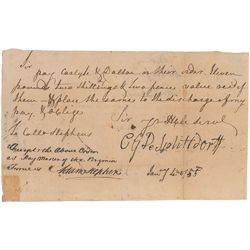 Sir
pay Carlyle & Dallas or their order Eleven
pounds two shillings & two pence value recd of
them & place the same to the discharge of my
pay & oblige
Sir yr Hble Servt
To Collo Stephens
C G De Splittdorff
Accept the Above Order
as Pay Master of the Virginia
Adam Stephen
Jany 4 1758